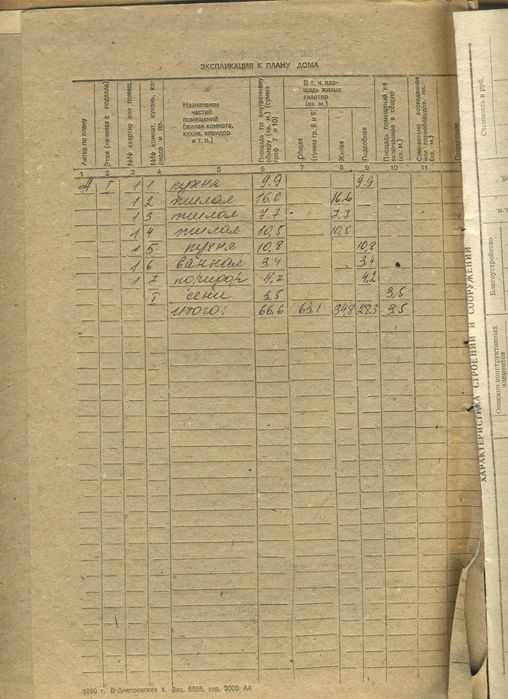 ЭКСПЛИКАЦИЯ К ПЛАНУ ДОМА
Литер по плану
Этаж (начиная с подвала)
№№ квартир или помещ.
№№ комнат, кухонь, ко-
ридор и пр.
Назначение
частей
помещений
(жилая комната,
кухня, коридор
и т. п.)
Площадь по внутреннему
обмеру (кв. м.) (сумма
граф 7 и 10)
В т. ч. пло-
щадь жилых
квартир
(кв. м.)
Общая
(сумма гр. 8 и 9)
Жилая
Подсобная
Площадь помещений, не
включенная в общую
(кв. м.)
1 2 3 4 5 6 7 8 9 10 11
А I 1 1 кухня 9.9 9.9
1 2 жилая 16.6 16.6
1 3 жилая 7.7 7.7
1 4 жилая 10,5 10,5
1 5 кухня 10,8 10,8
1 6 ванная 3.4 3.4
1 7 коридор 4,2 4,2
I сени 3,5 3,5
Итого: 66.6 63.1 34.8 28.3 3.5
1989 г. В-Днепровская т. Зак. 5655, тир. 3000 А4
Стоимость в руб.
Благоустройство
Описание конструктивных
элементов
ХАРАКТЕРИСТИКА СТРОЕНИЙ И СООРУЖЕНИЙ